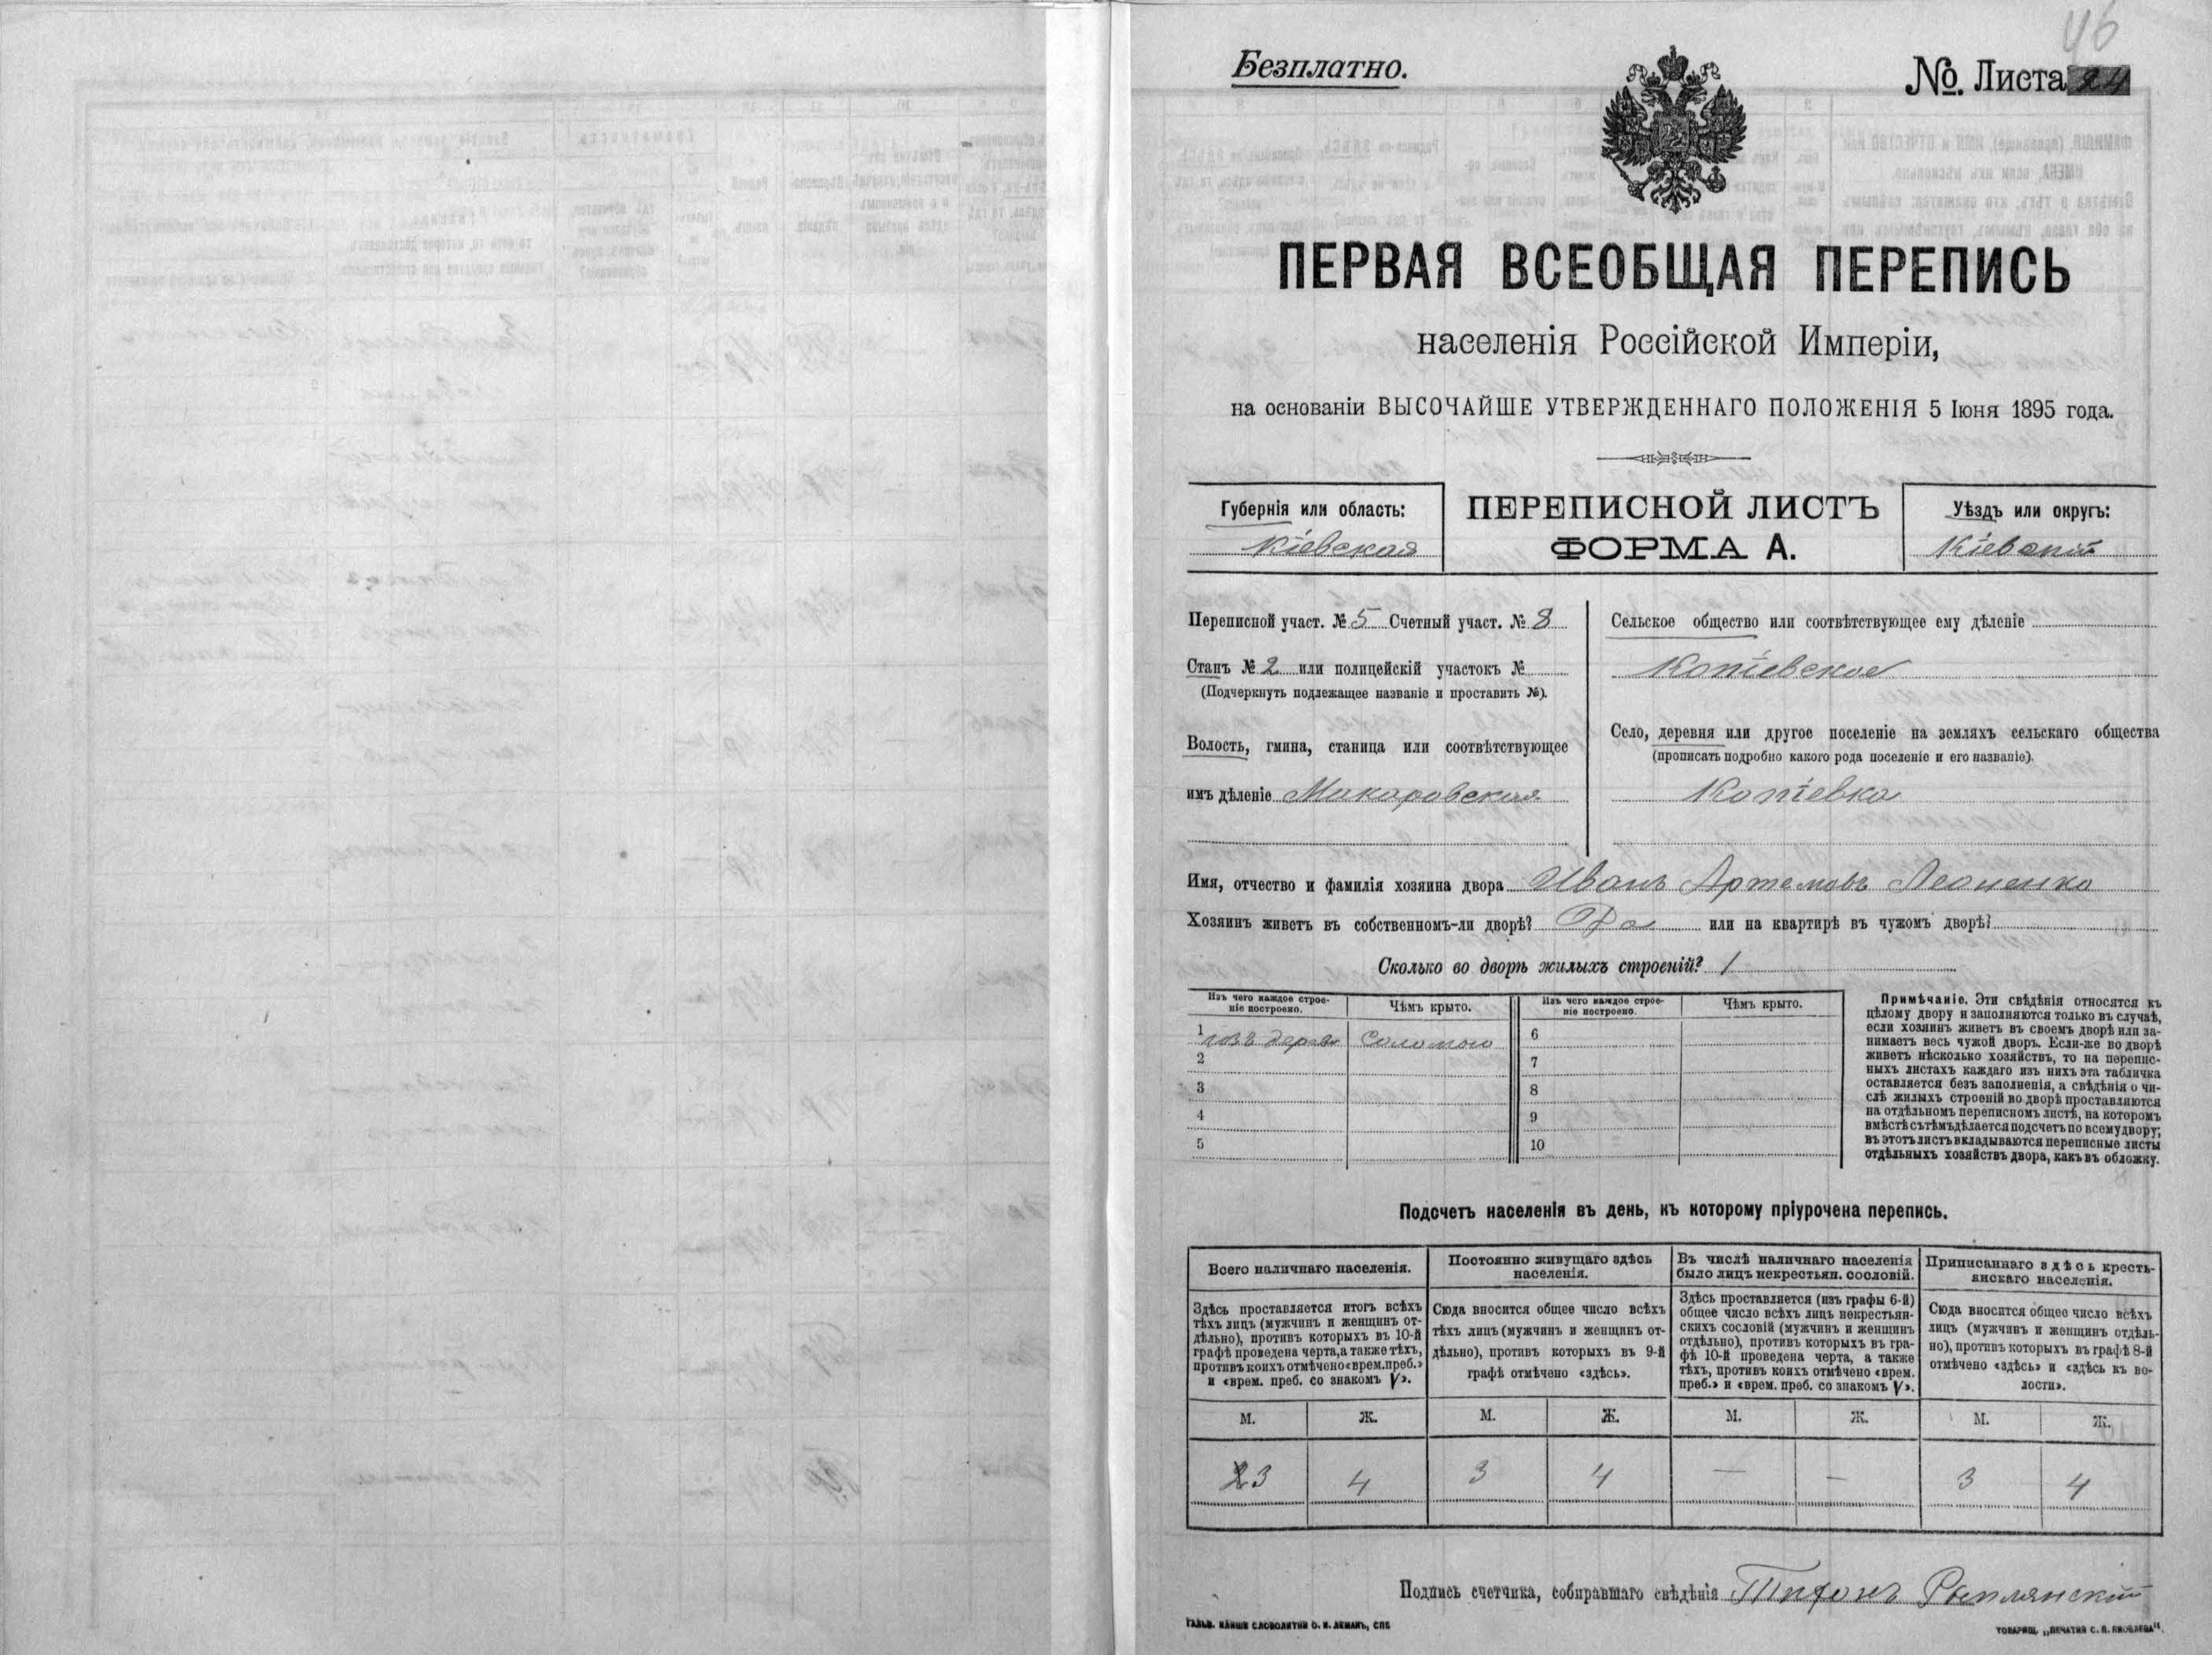 46
Безплатно.
№. Листа 24
ПЕРВАЯ ВСЕОБЩАЯ ПЕРЕПИСЬ
населенія Россійской Имперіи,
на основаніи ВЫСОЧАЙШЕ УТВЕРЖДЕННАГО ПОЛОЖЕНІЯ 5 Іюня 1895 года.
Губернія или область:
Кіевская
ПЕРЕПИСНОЙ ЛИСТЪ
ФОРМА А.
Уѣздъ или округъ:
Кіевскій
Переписной участ. № 5 Счетный участ. № 8
Станъ № 2 или полицейскій участокъ №
(Подчеркнуть подлежащее названіе и проставить №).
Волость, гмина, станица или соотвѣтствующее
имъ дѣленіе Макаровская
Сельское общество или соотвѣтствующее ему дѣленіе
Копіевское
Село, деревня или другое поселеніе на земляхъ сельскаго общества
(прописать подробно какого рода поселеніе и его названіе).
Копіевка
Имя, отчество и фамилія хозяина двора Иванъ Артемовъ Леоненко
Хозяинъ живетъ въ собственномъ-ли дворѣ? Да или на квартирѣ въ чужомъ дворѣ?
Сколько во дворѣ жилыхъ строеній? 1
Изъ чего каждое строе-
ніе построено.
Чѣмъ крыто.
Изъ чего каждое строе-
ніе построено.
Чѣмъ крыто.
1 изъ дерева Соломою
2
3
4
5
6
7
8
9
10
Примѣчаніе. Эти свѣдѣнія относятся къ
цѣлому двору и заполняются только въ случаѣ,
если хозяинъ живетъ въ своемъ дворѣ или за-
нимаетъ весь чужой дворъ. Если-же во дворѣ
живетъ нѣсколько хозяйствъ, то на перепис-
ныхъ листахъ каждаго изъ нихъ эта табличка
оставляется безъ заполненія, а свѣдѣнія о чи-
слѣ жилыхъ строеній во дворѣ проставляются
на отдѣльномъ переписномъ листѣ, на которомъ
вмѣстѣ съ тѣмъ дѣлается подсчетъ по всему двору;
въ этотъ листъ вкладываются переписные листы
отдѣльныхъ хозяйствъ двора, какъ въ обложку.
Подсчетъ населенія въ день, къ которому пріурочена перепись.
Всего наличнаго населенія.
Постоянно живущаго здѣсь
населенія.
Въ числѣ наличнаго населенія
было лицъ некрестьян. сословій.
Приписаннаго здѣсь кресть-
янскаго населенія.
Здѣсь проставляется итогъ всѣхъ
тѣхъ лицъ (мужчинъ и женщинъ от-
дѣльно), противъ которыхъ въ 10-й
графѣ проведена черта, а также тѣхъ,
противъ коихъ отмѣчено «врем. преб.»
и «врем. преб. со знакомъ V».
Сюда вносится общее число всѣхъ
тѣхъ лицъ (мужчинъ и женщинъ от-
дѣльно), противъ которыхъ въ 9-й
графѣ отмѣчено «здѣсь».
Здѣсь проставляется (изъ графы 6-й)
общее число всѣхъ лицъ некрестьян-
скихъ сословій (мужчинъ и женщинъ
отдѣльно), противъ которыхъ въ гра-
фѣ 10-й проведена черта, а также
тѣхъ, противъ коихъ отмѣчено «врем.
преб.» и «врем. преб. со знакомъ V».
Сюда вносится общее число всѣхъ
лицъ (мужчинъ и женщинъ отдѣль-
но), противъ которыхъ въ графѣ 8-й
отмѣчено «здѣсь» и «здѣсь къ во-
лости».
М. Ж. М. Ж. М. Ж. М. Ж.
3 4 3 4 — — 3 4
Подпись счетчика, собиравшаго свѣдѣнія
ГАЛЬВ. КЛИШЕ СЛОВОЛИТНИ О. И. ЛЕМАНЪ, СПБ
ТОВАРИЩ. „ПЕЧАТНЯ С. П. ЯКОВЛЕВА".